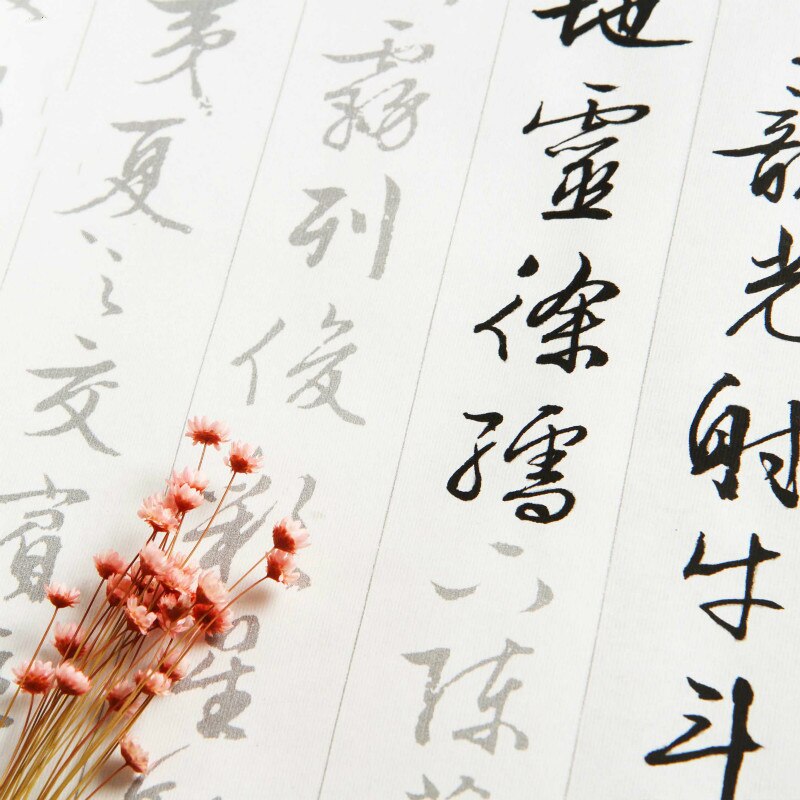 龍光射牛斗
地靈徐孺下陳
霧列俊彩星
夷夏之交賓